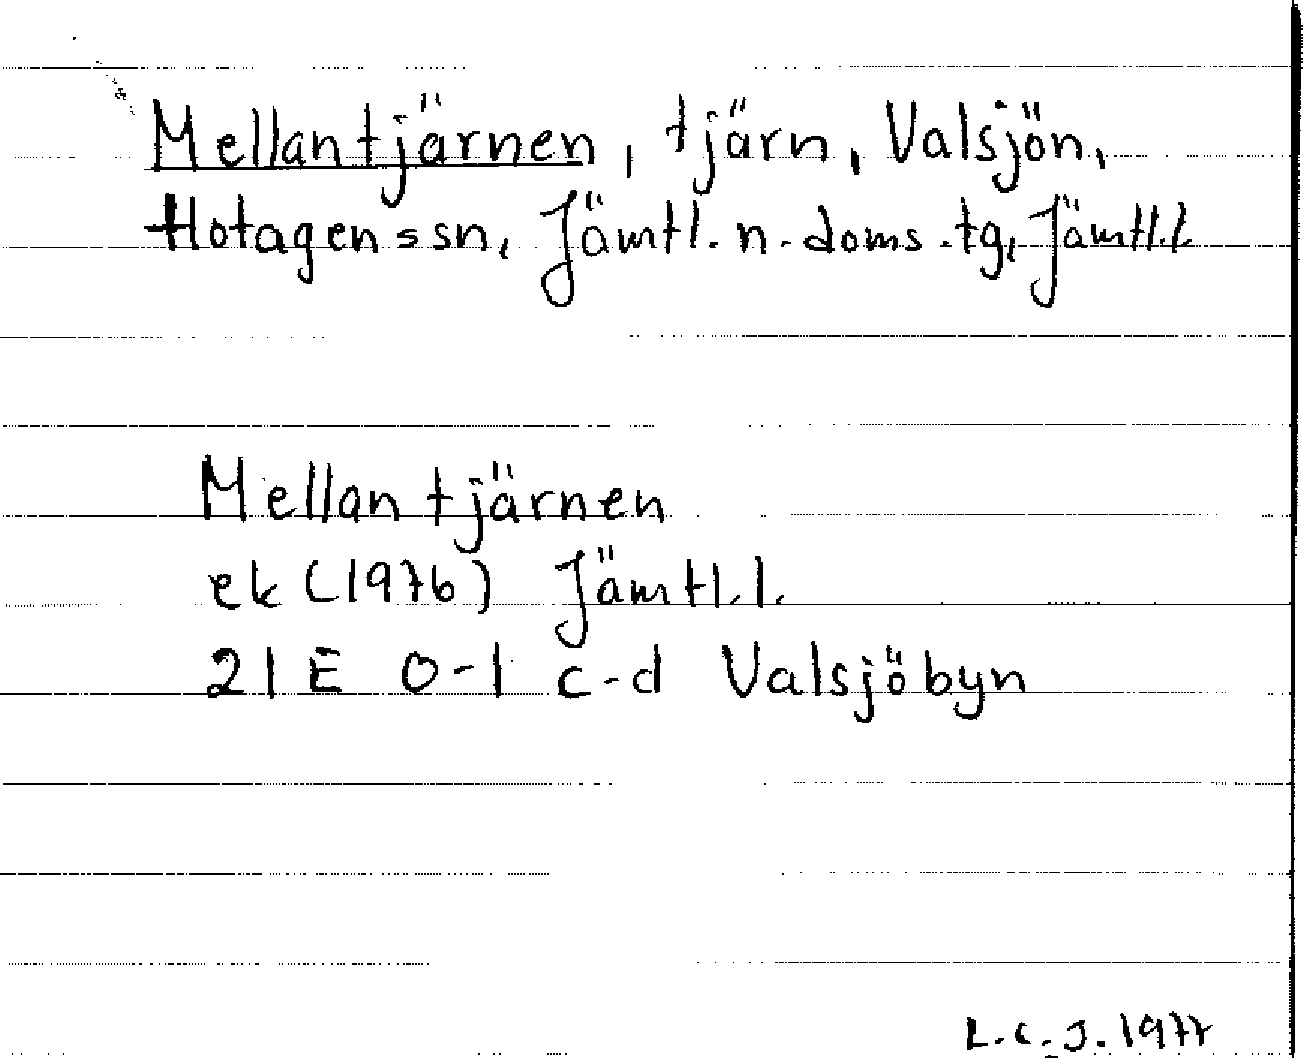 Mellantjärnen, tjärn, Valsjön,
Hotagens sn, Jämtl. n. doms.tg, Jämtl.l.
Mellantjärnen
ek (1976) Jämtl.l.
21 E 0-1 c-d Valsjöbyn
L.C.J. 1977